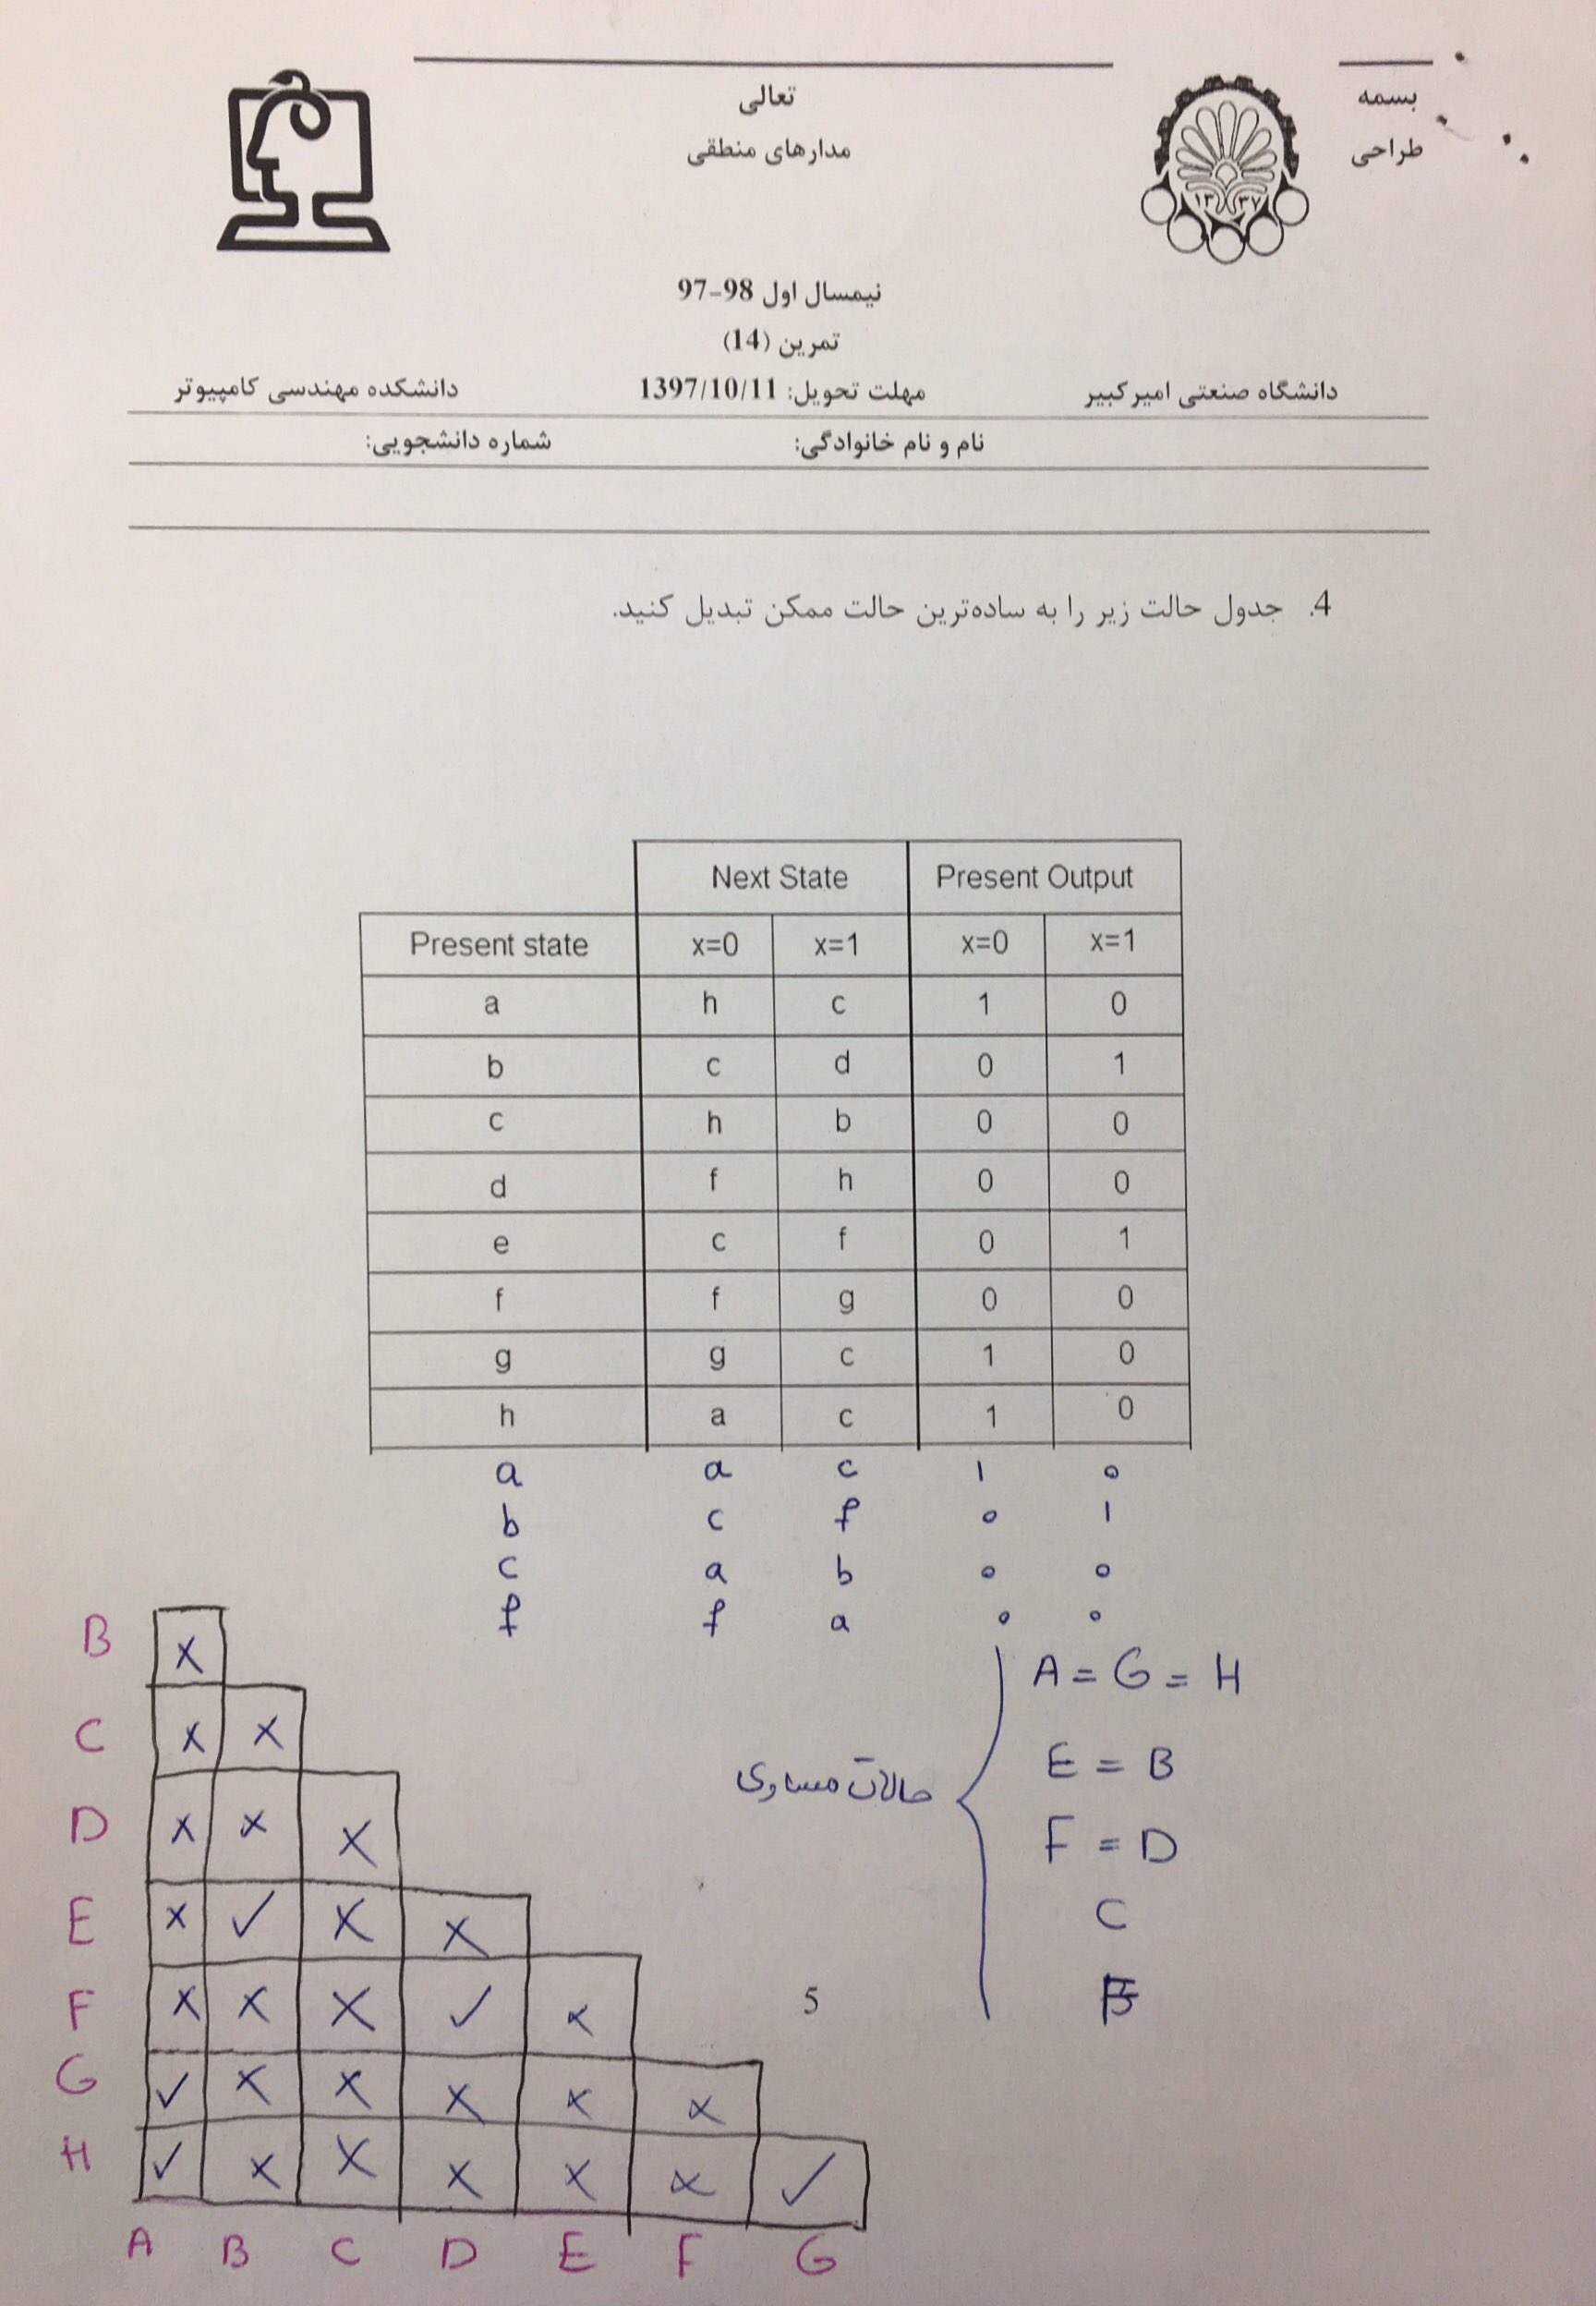 بسمه تعالی
طراحی مدارهای منطقی
۱۳۳۷
نیمسال اول 98-97
تمرین (14)
دانشگاه صنعتی امیرکبیر مهلت تحویل: 1397/10/11 دانشکده مهندسی کامپیوتر
نام و نام خانوادگی: شماره دانشجویی:
4. جدول حالت زیر را به ساده‌ترین حالت ممکن تبدیل کنید.
Next State Present Output
Present state x=0 x=1 x=0 x=1
a h c 1 0
b c d 0 1
c h b 0 0
d f h 0 0
e c f 0 1
f f g 0 0
g g c 1 0
h a c 1 0
a a c 1 0
b c f 0 1
c a b 0 0
f f a 0 0
B x
C x x
D x x x
E x ✓ x x
F x x x ✓ x
G ✓ x x x x x
H ✓ x x x x x ✓
A B C D E F G
حالات مساوی
A = G = H
E = B
F = D
C
5